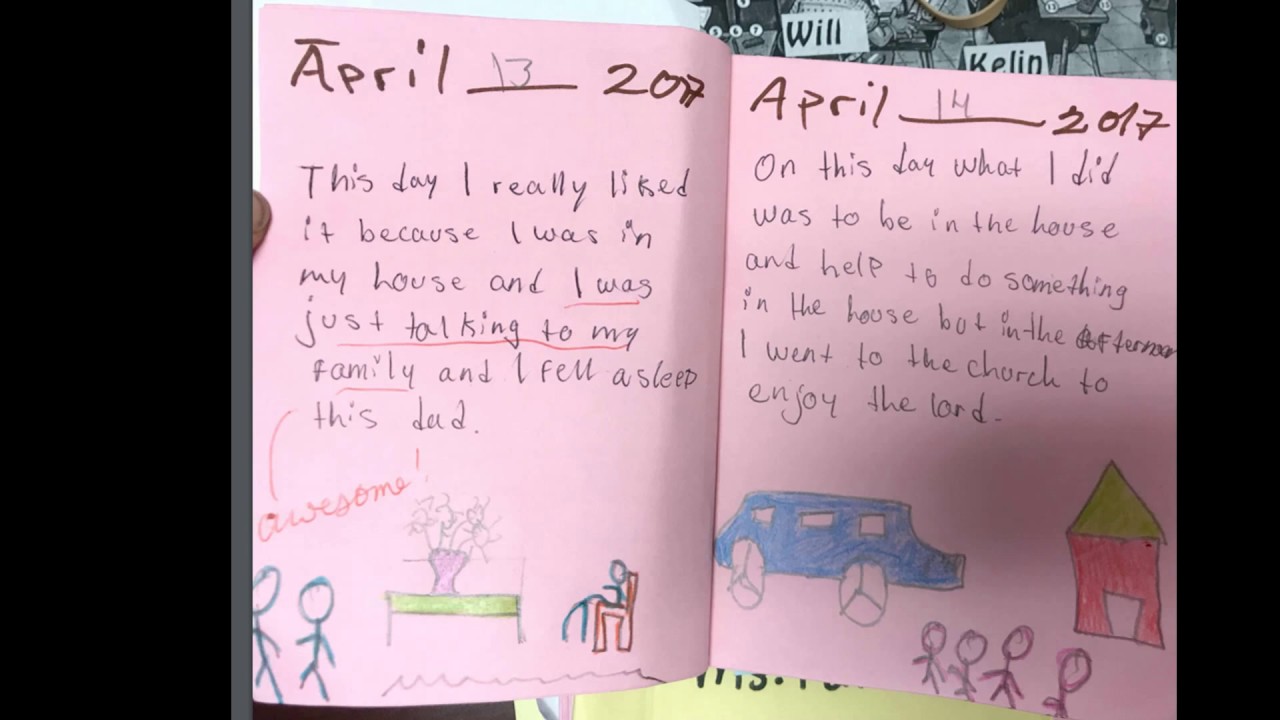 Will
Kelin
April 13 2017
This day I really liked
it because I was in
my house and I was
just talking to my
family and I fell asleep
this dad.
awesome!
April 14 2017
On this day what I did
was to be in the house
and help to do something
in the house but in the
I went to the church to
enjoy the lord.